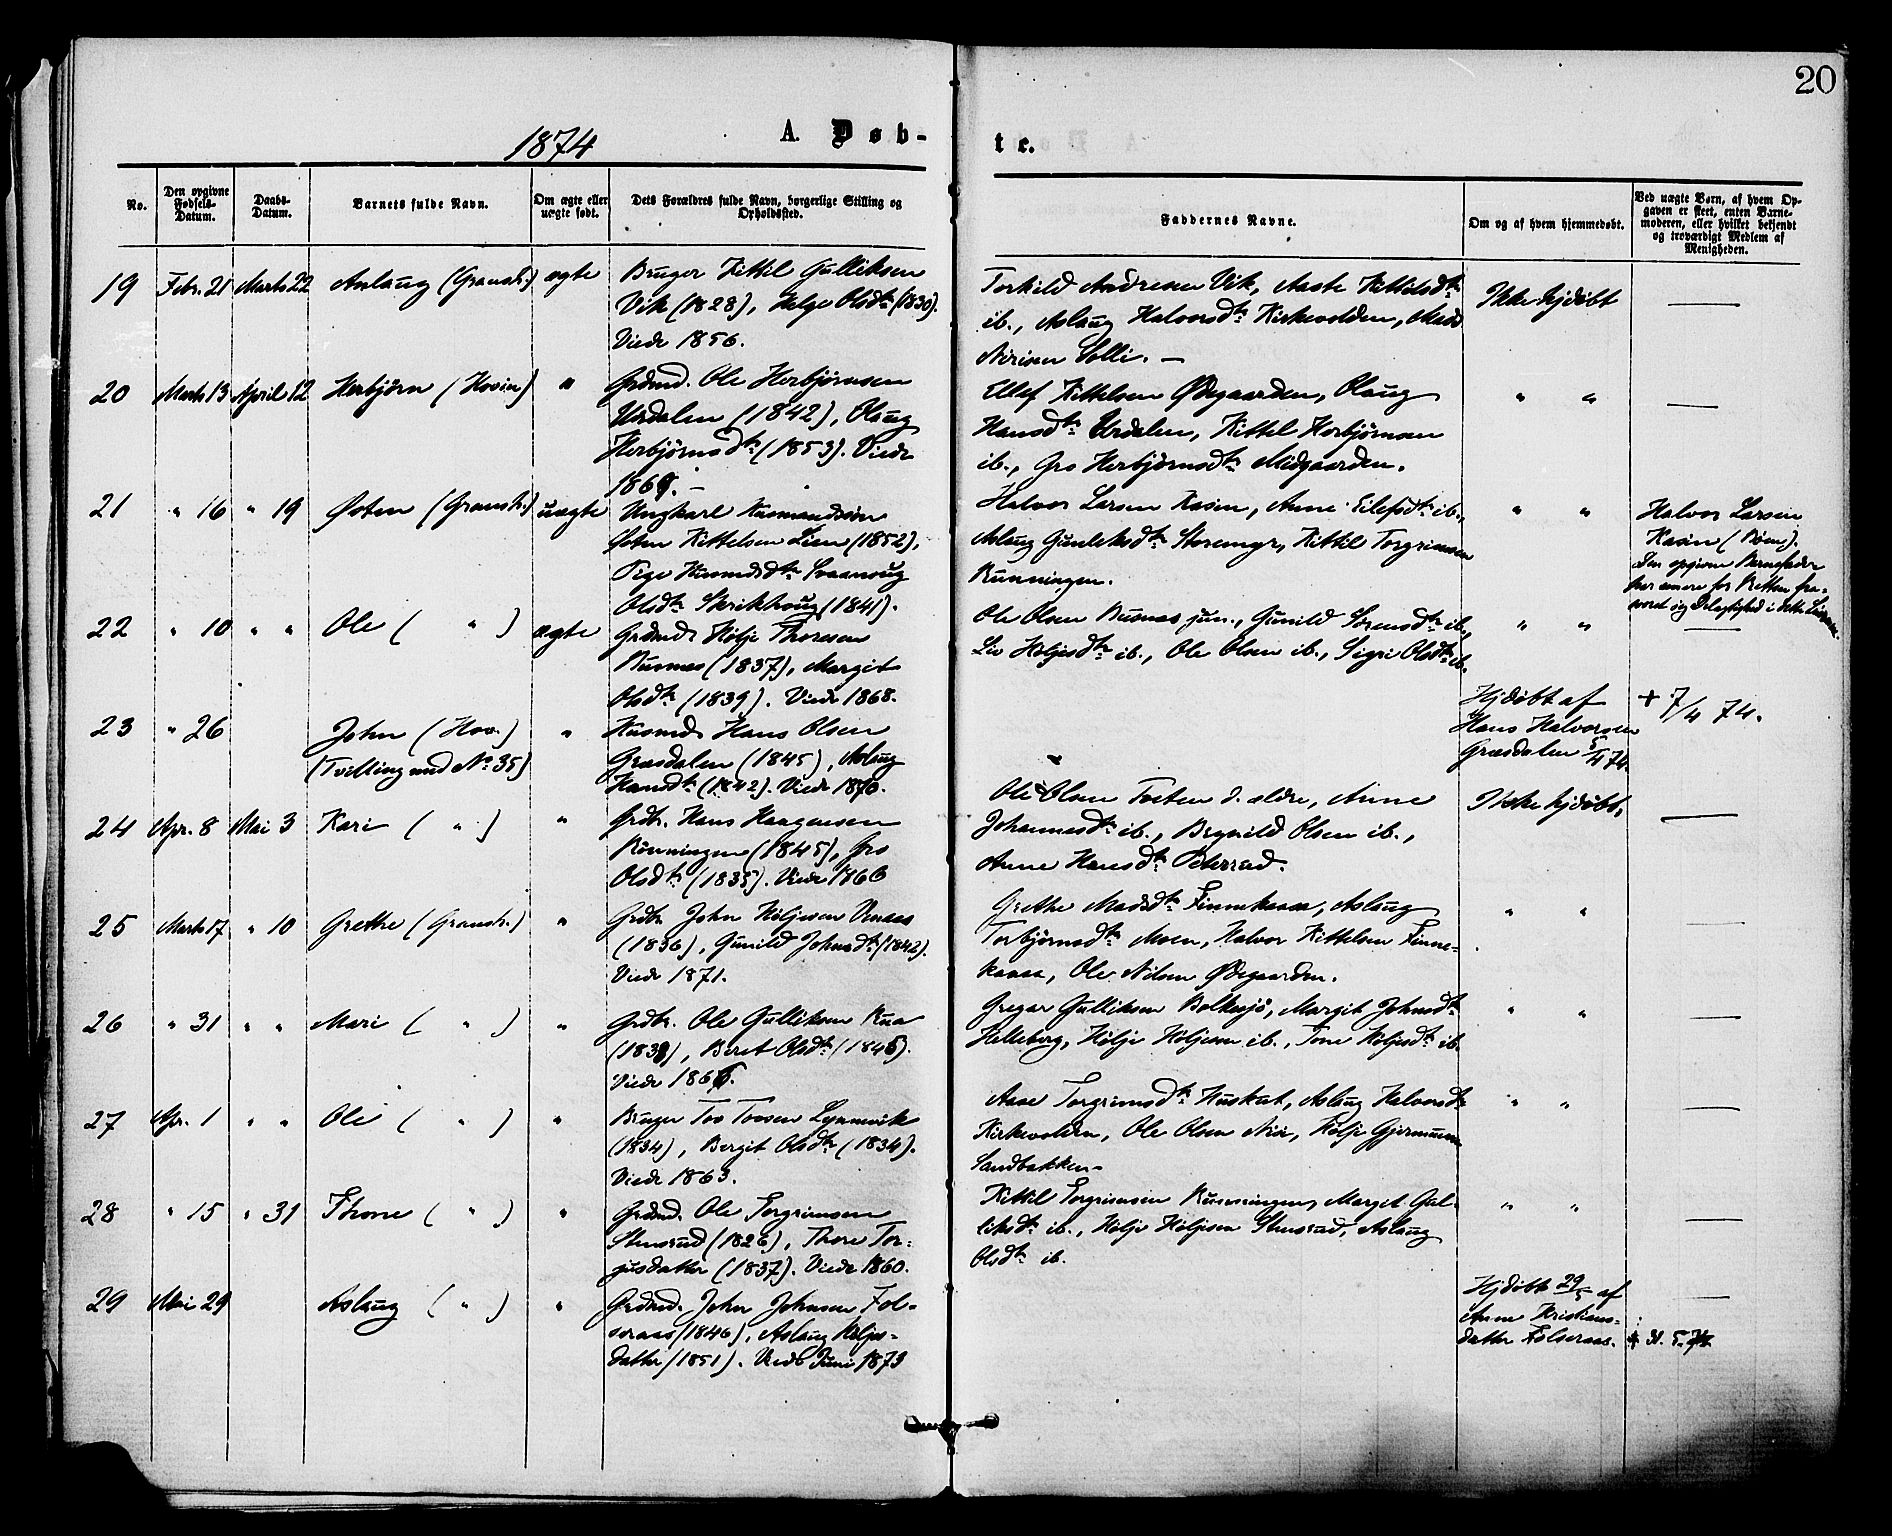 20
1874
A. Døb-
te.
No.
Den opgivne Fødsels-Datum.
Daabs-Datum.
Barnets fulde Navn.
Om ægte eller uægte født.
Dets Forældres fulde Navn, borgerlige Stilling og Opholdssted.
Faddernes Navne.
Om og af hvem hjemmedøbt.
Ved uægte Børn, af hvem Opgaven er skeet, enten Barnemoderen, eller hvilket bekjendt og troværdigt Medlem af Menigheden.
19 Febr. 21 Marts 22 Aslaug (Gransh.) ægte Bruger Kittil Gulliksen
Vik (1828), Helge Olsdtr (1830).
Viede 1856.
Torkild Andresen Vik, Aaste Kittilsdtr
ib., Aslaug Halvorsdtr Kirkevolden, Mads
Solli. —
Ikke hjdøbt
20 Marts 13 April 12 Herbjørn (Hovin) " Grdmd. Ole Herbjørnsen
Urdalen (1842), Olaug
Herbjørnsdtr (1853). Viede
1869. —
Ellef Kittelsen Ødegaarden, Olaug
Hansdtr Urdalen, Kittel Herbjørnsen
ib., Gro Herbjørnsdtr Midgaarden.
" "
21 " 16 " 19 Østen (Gransh.) uægte Ungkarl Husmandssøn
Østen Kittelsen Lien (1852),
Pige Husmdsdtr Svanaug
Olsdtr Skrikhaug (1841).
Halvor Larsen Kasin, Anne Eilefsdtr ib.,
Aslaug Gunleksdtr Storemyr, Kittil Torgrimsen
Runningen.
" "
Halvor Larsen
Kasin (
Den opgivne Barnefader
har senere for Retten fra-
svoret sig Delagtighed i dette
22 " 10 " " Ole ( " ) ægte Grdmd. Hølje Thoresen
Busnes (1837), Margit
Olsdtr (1839). Viede 1868.
Ole Olsen Busnes jun., Gunild Sørensdtr ib.,
Liv Høljesdtr ib., Ole Olsen ib., Sigri Olsdtr ib.
" "
23 " 26 John (Hov.)
(Tvilling med No 35)
" Husmd. Hans Olsen
Grasdalen (1845), Aslaug
Hansdtr (1842). Viede 1870.
Hjdøbt af
Hans Halvorsen
Grasdalen 5/4 74.
+ 7/4 74.
24 Apr. 8 Mai 3 Kari ( " ) " Grdbr. Hans Haagensen
Rønningen (1845), Gro
Olsdtr (1835). Viede 1866
Ole Olsen Tveten d. ældre, Anne
Johannesdtr ib., Brynild Olsen ib.,
Anne Hansdtr
Ikke hjdøbt.
25 Marts 17 " 10 Grethe (Gransh.) " Grdbr. John Høljesen Vinaas
(1836), Gunild Johnsdtr (1842).
Viede 1871.
Grethe Madsdtr Finnekaasa, Aslaug
Torbjørnsdtr Moen, Halvor Kittelsen Finne-
kaasa, Ole Nilsen Ødegaarden.
" "
26 " 31 " " Mari ( " ) " Grdbr. Ole Gulliksen Rua
(1838), Beret Olsdtr (1846).
Viede 1866.
Gregar Gulliksen Bolkesjø, Margit Johnsdtr
Helleberg, Hølje Høljesen ib., Tone Høljesdtr ib.
" "
27 Apr. 1 " " Ole ( " ) " Bruger Tov Tovsen Lynnevik
(1834), Bergit Olsdtr (1834).
Viede 1863.
Aase Torgrimsdtr Huskut, Aslaug Halvorsdtr
Kirkevolden, Ole Olsen Nisi, Hølje Gjermunsen
Sandbakken—
" "
28 " 15 " 31 Thone ( " ) " Grdmd. Ole Torgrimsen
Stensrud (1826), Thore Tor-
jusdatter (1837). Viede 1860.
Kittil Torgrimsen Runningen, Margit Gul-
liksdtr ib., Hølje Høljesen Stensrud, Aslaug
Olsdtr ib.
" "
29 Mai 29 Aslaug ( " ) " Grdmd. John Johnsen Fol-
seraas (1846), Aslaug Høljes-
datter (1851). Viede Juni 1873
Hjdøbt 29/5 af
Anne Kristians-
datter Folseraas.
+ 31. 5. 74.